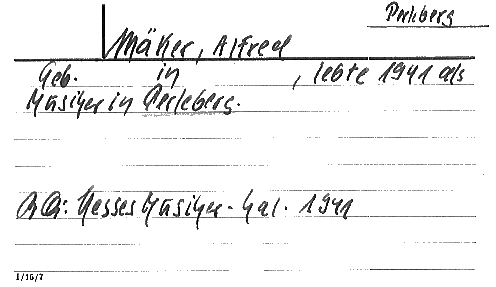 Perleberg
Mäker, Alfred
Geb. in , lebte 1941 als
Musiker in Perleberg.
Hesses Musiker-Kal. 1941
1/16/7